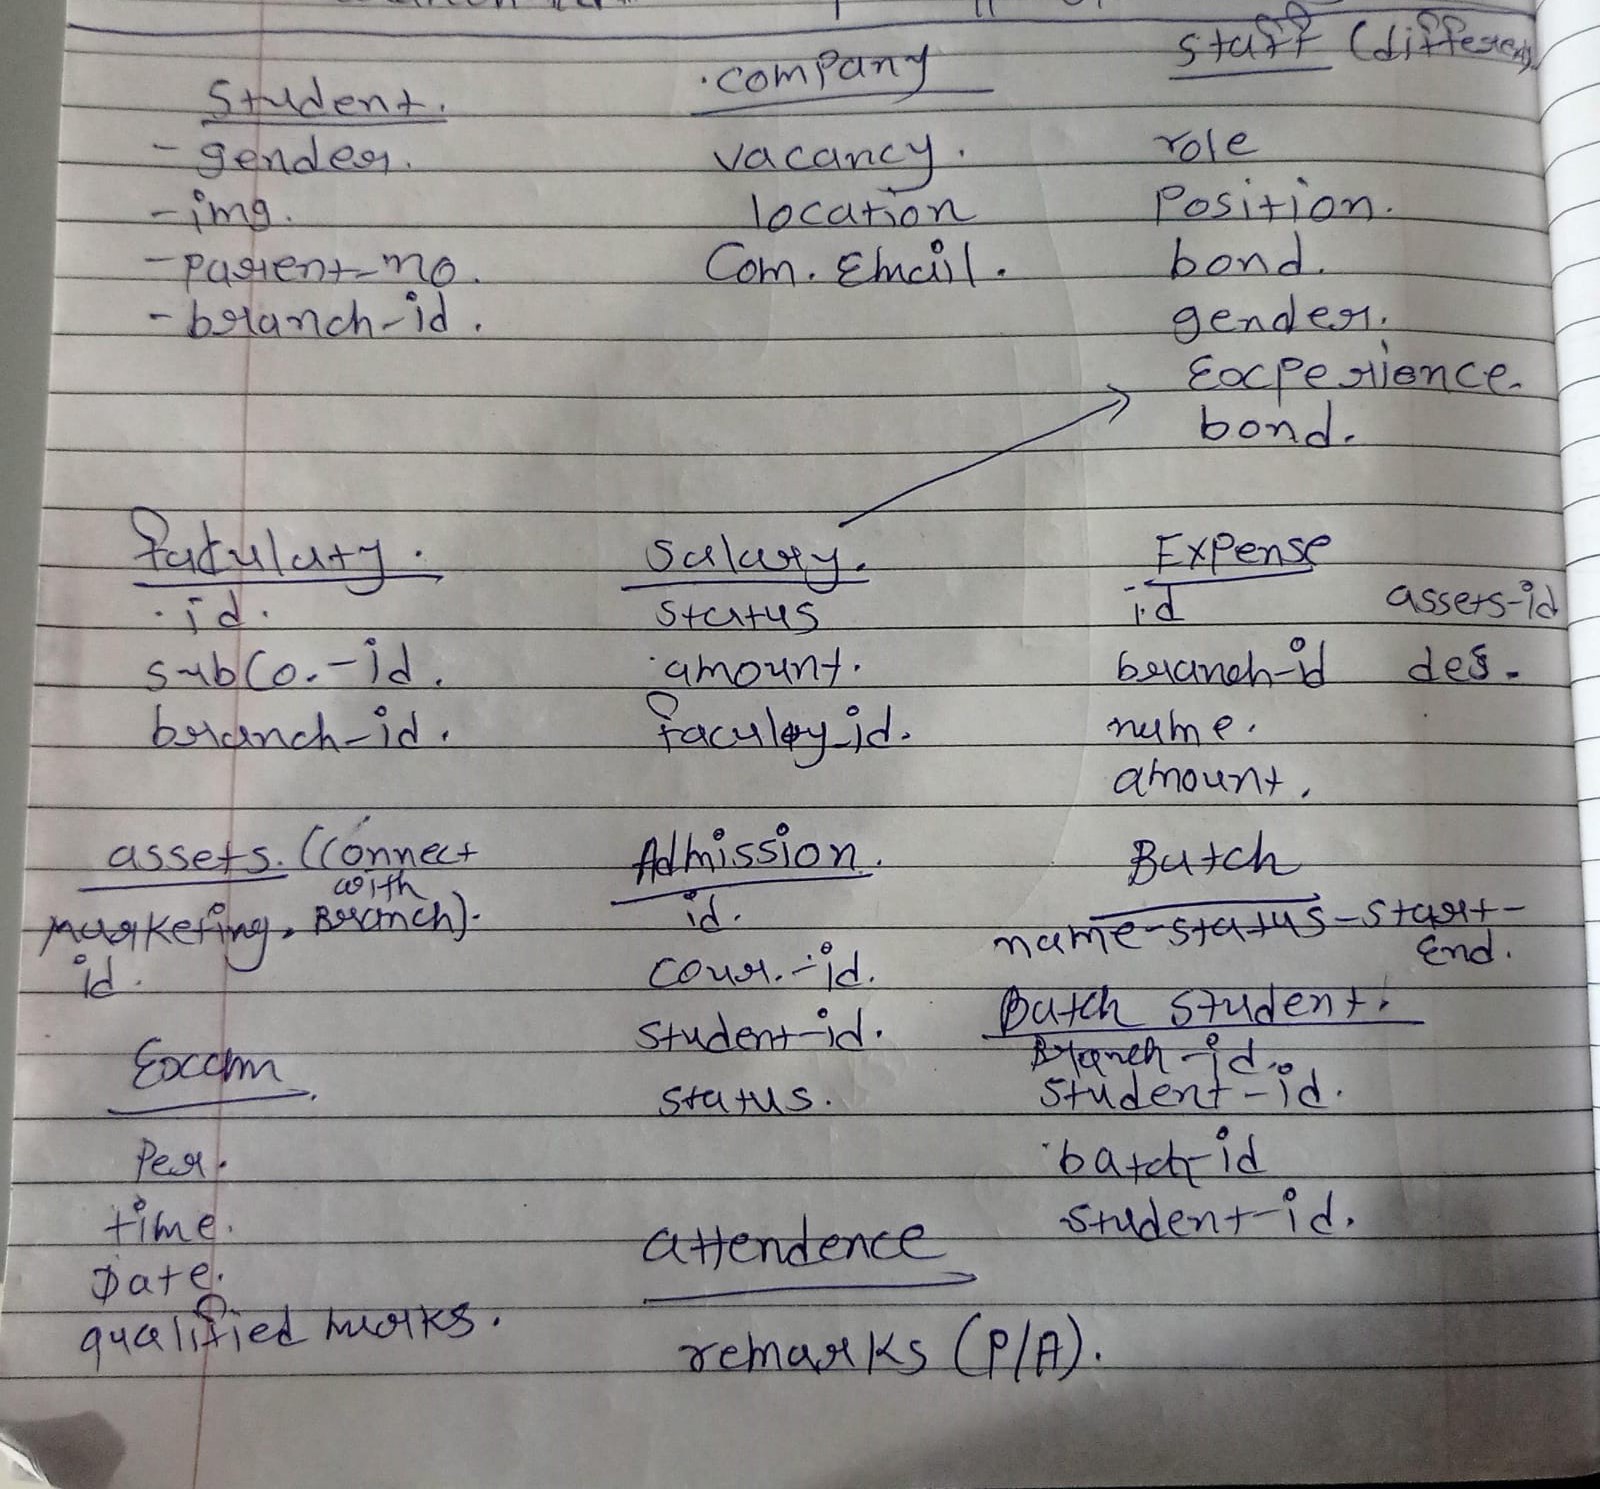 Student.
- gender.
- img.
- parent-no.
- branch-id.
company
vacancy.
location
Com. Email.
Staff (different)
role
Position.
bond.
gender.
Experience.
bond.
id.
subCo.-id.
branch-id.
Salary.
status
amount.
faculty_id.
Expense
id assets-id
branch-id des.
name.
amount.
assets. (Connect
with
Branch).
marketing.
id.
Admission.
id.
cour.-id.
Student-id.
status.
Batch
name-status-start-
End.
Batch Student.
Branch-id.
Student-id.
batch-id
student-id.
Exam
Per.
time.
Date.
qualified marks.
attendence
remarks (P/A).